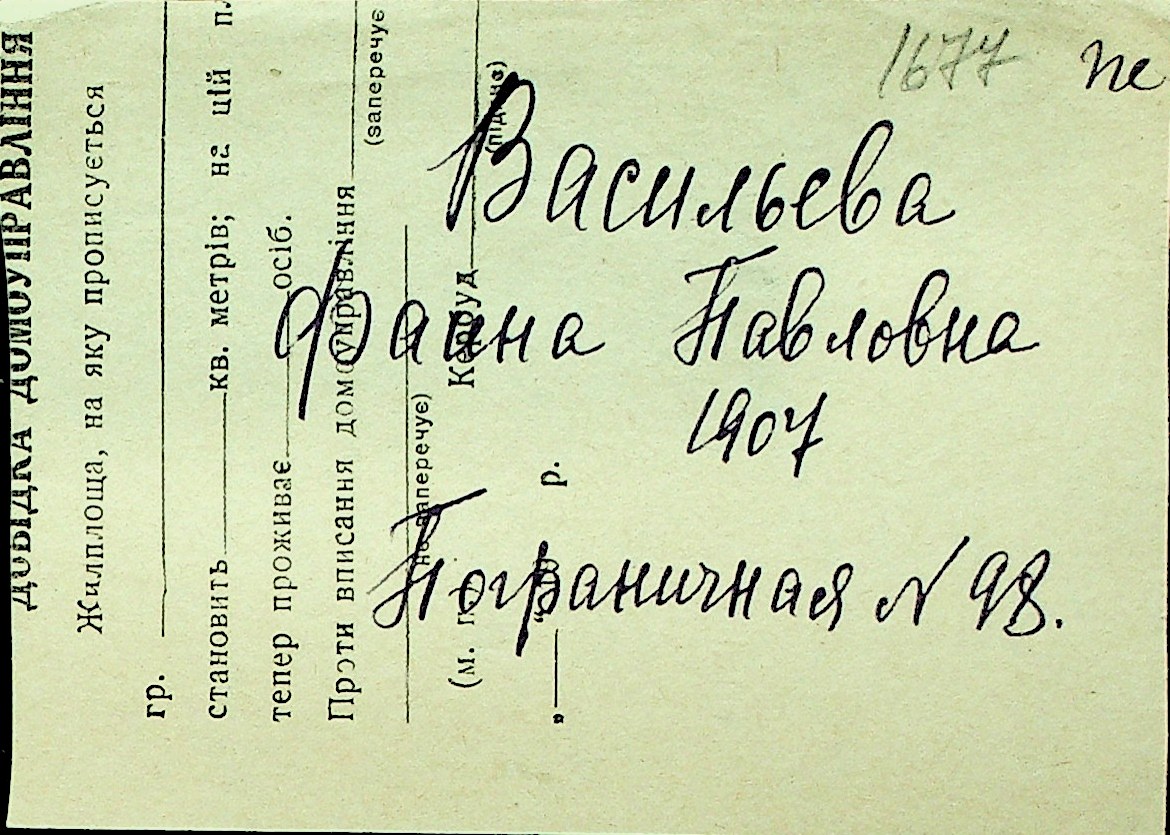 1677 не
Васильева
Фаина Павловна
1907
Пограничная № 98.
ДОВІДКА ДОМОУПРАВЛІННЯ
Жилплоща, на яку прописується
гр.
становить кв. метрів; на цій
тепер проживає осіб.
Проти вписання домоуправління
(заперечує
не заперечує)
(м. п.) Керуд
(підпис)
„ “ р.